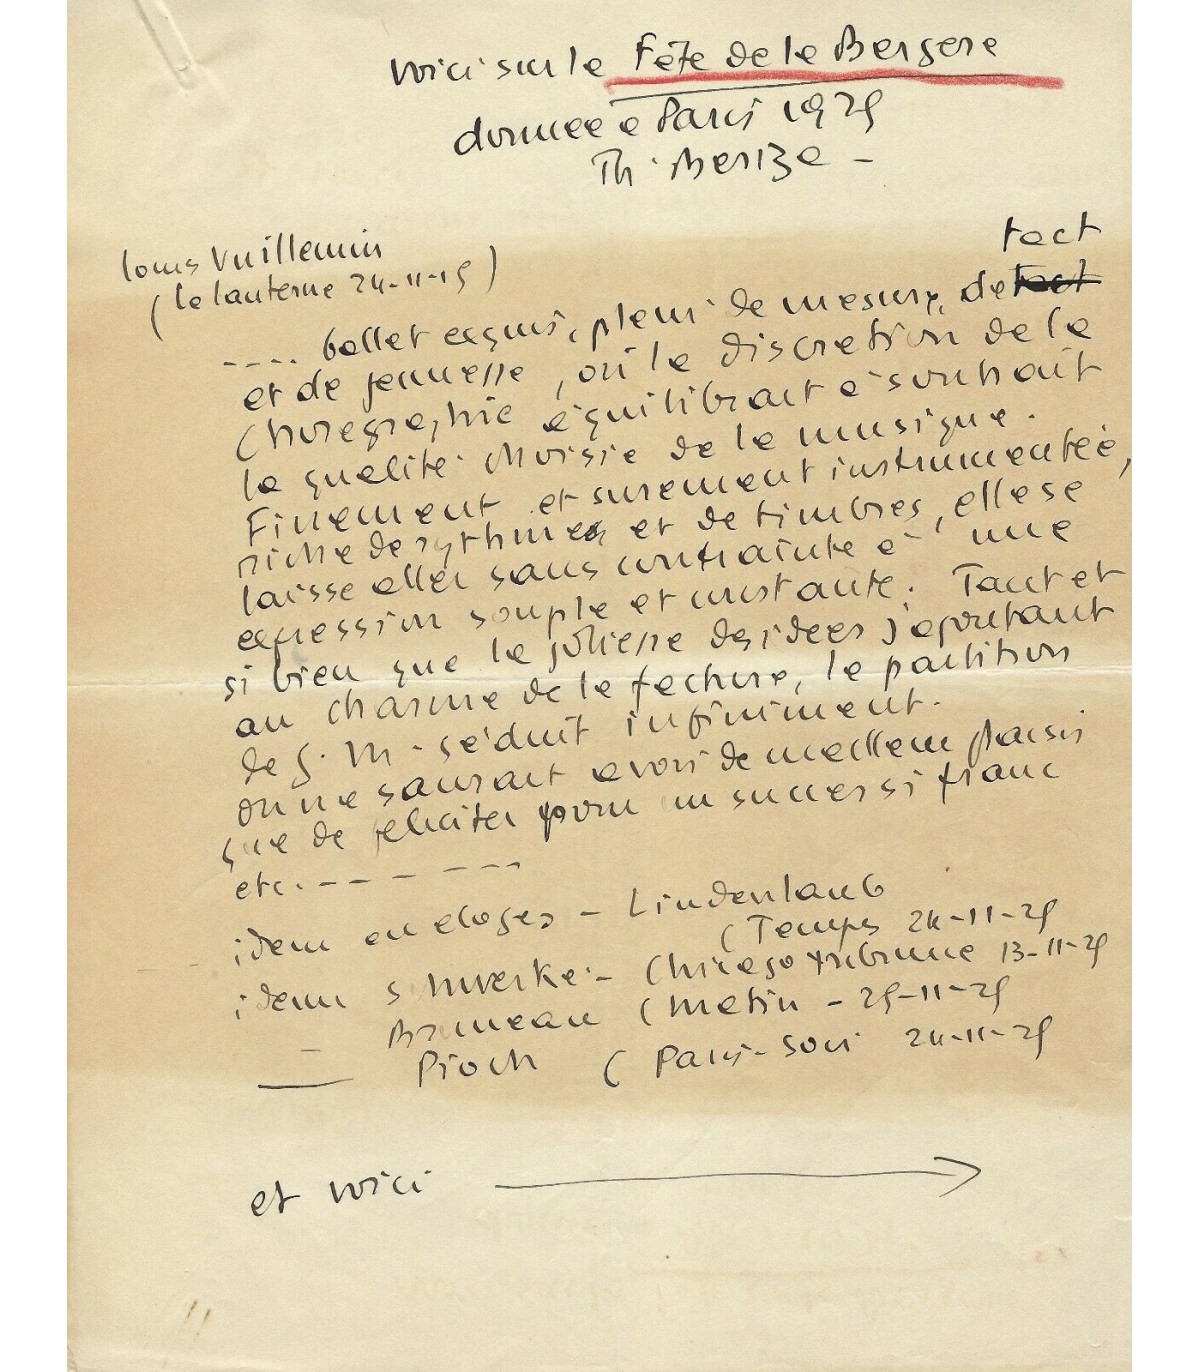 voici sur la Fête de la Bergere
donnée a Paris 1925
Th. Beriza -
tact
Louis Vuillemin
(la lanterne 24-11-25)
.... ballet exquis, plein de mesure, de tact
et de jeunesse, où la discretion de la
choregraphie équilibrait à souhait
la qualité choisie de la musique.
Finement et surement instrumentée,
riche de rythmes et de timbres, elle se
laisse aller sans contrainte à une
expression souple et constante. Tant et
si bien que la joliesse des idées s'ajoutant
au charme de la facture, la partition
de G. M. séduit infiniment.
on ne saurait avoir de meilleur plaisir
que de feliciter pour un succes si franc
etc. - - - - - -
idem en eloges - Lindenlaub
(Temps 24-11-25
idem Schwerke - Chicago tribune 13-11-25
— Bruneau (Matin - 25-11-25
— Pioch (Paris-Soir 24-11-25
et voici →